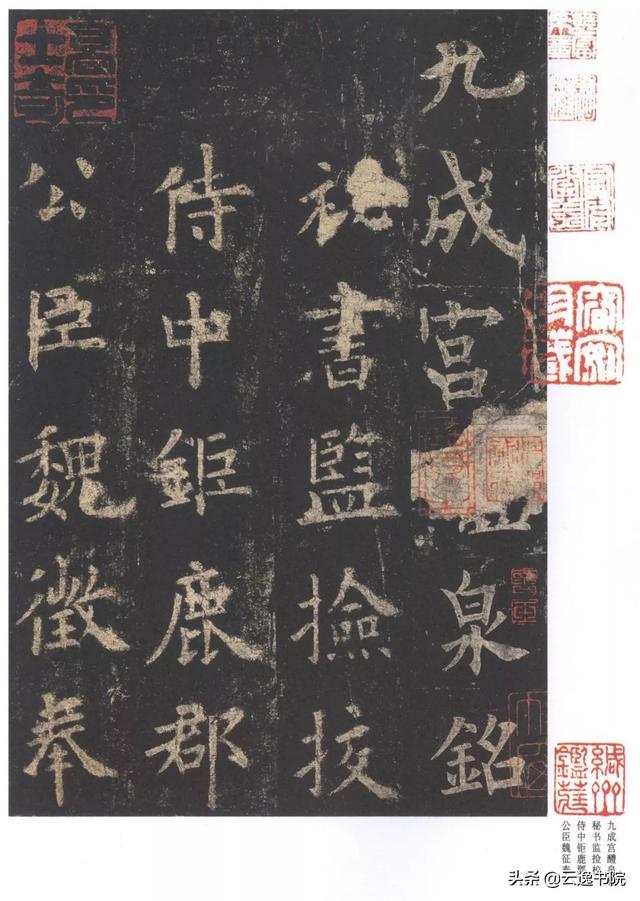 九成宮泉銘
祕書監撿挍
侍中鉅鹿郡
公臣魏徵奉
九成宫醴泉
秘书监捡校
侍中钜鹿郡
公臣魏征奉
头条 @云逸书院